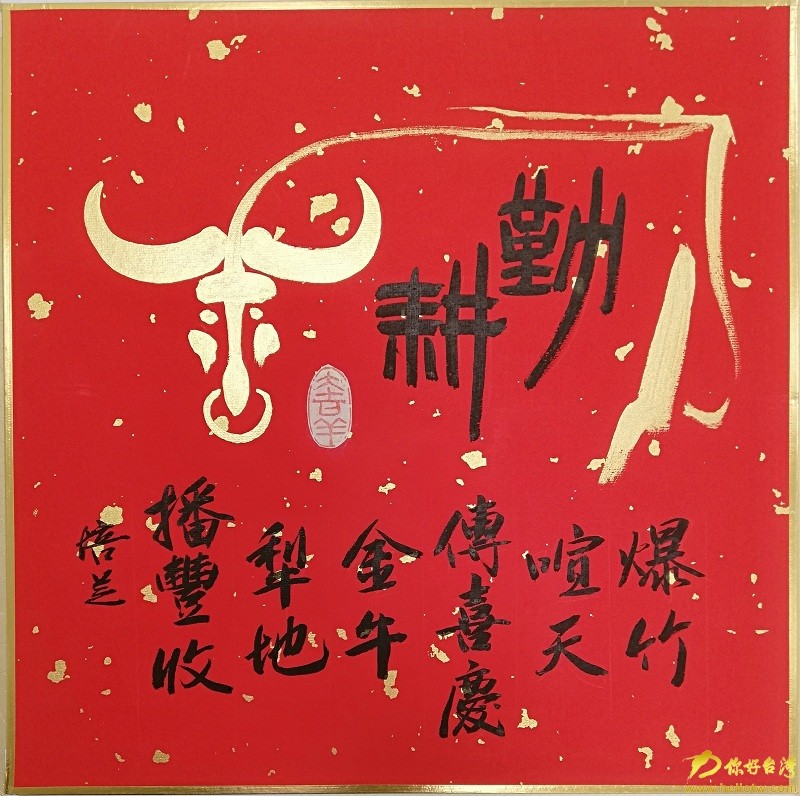 勤耕
爆竹
喧天
傳喜慶
金牛
犁地
播豐收
培芝
大吉羊
你好台湾